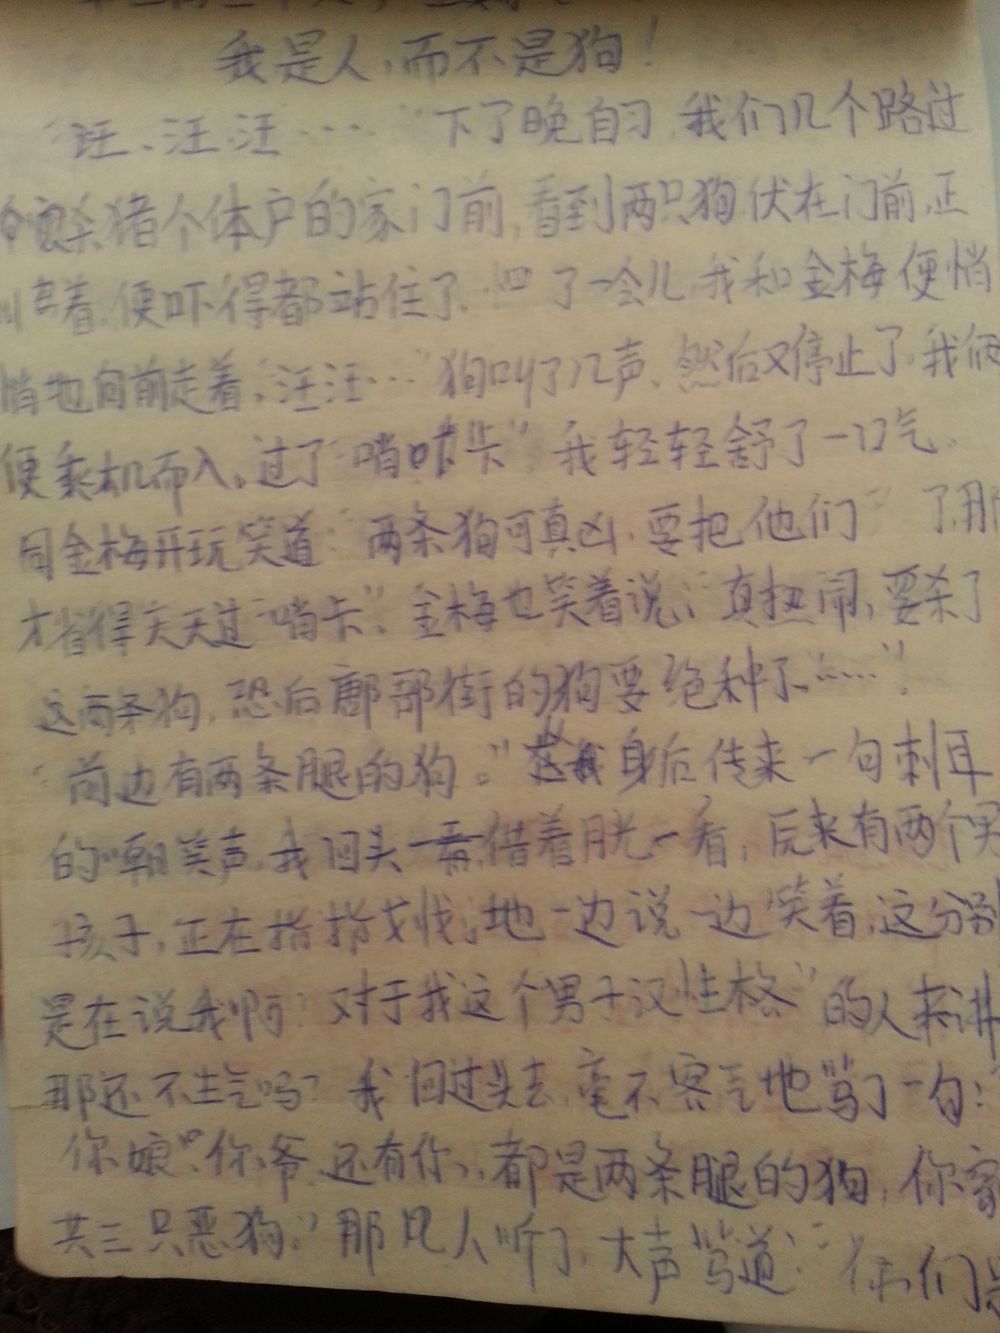 我是人,而不是狗!
"汪、汪、汪……"下了晚自习,我们几个路过
杀猪个体户的家门前,看到两只狗伏在门前,正
着,便吓得都站住了, 了一会儿,我和金梅便悄
悄地向前走着,"汪汪……"狗叫了几声,然后又停止了,我俩
便乘机而入。过了"哨卡",我轻轻舒了一口气。
同金梅开玩笑道:"两条狗可真凶,要把他们 了,那
才省得天天过"哨卡"。金梅也笑着说:"真热闹,要杀了
这两条狗,恐后鄌郚街的狗要绝种了……"
"前边有两条腿的狗。"我身后传来一句刺耳
的嘲笑声,我回头借着月光一看,后来有两个男
孩子,正在指指戈戈地一边说一边笑着,这分别
是在说我啊?对于我这个"男子汉性格"的人来讲
那还不生气吗?我回过头去,毫不客气地骂了一句:
你娘、你爷、还有你,都是两条腿的狗,你家
共三只恶狗。"那几人听了,大声骂道:"你们